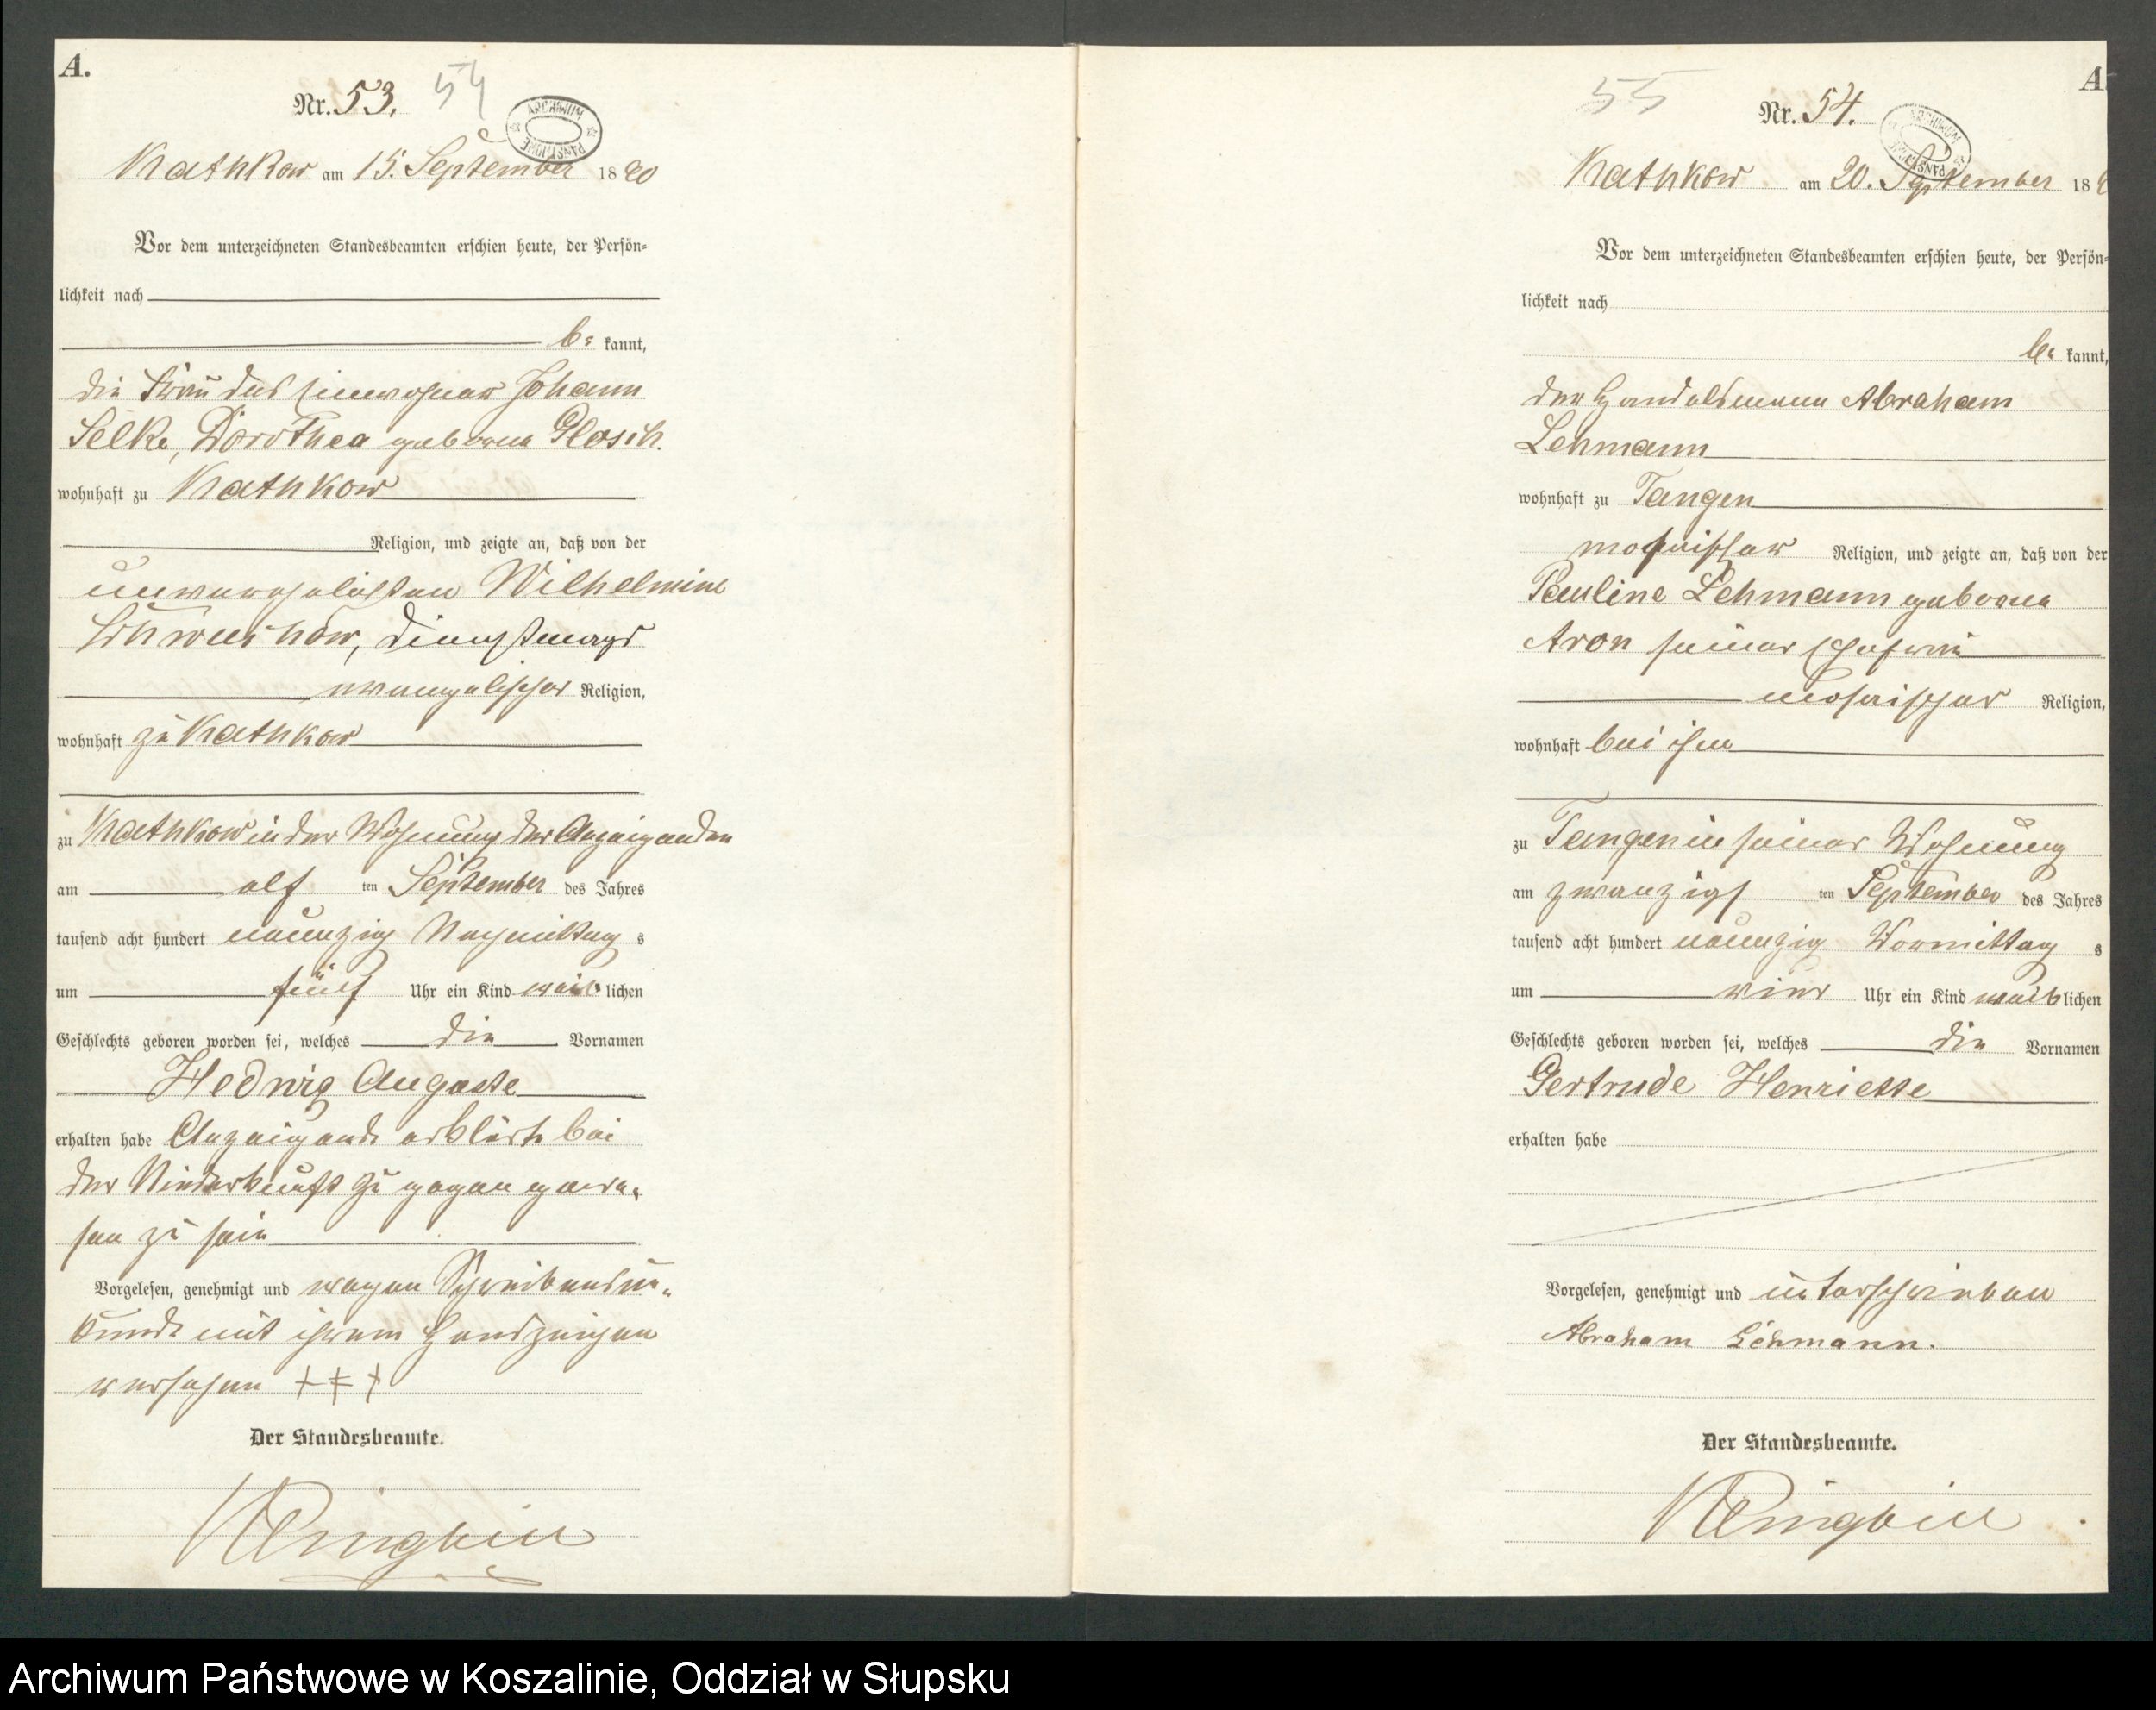 A.
Nr. 53. 54
ARCHIWUM PAŃSTWOWE
Kathkow am 15. September 1890
Vor dem unterzeichneten Standesbeamten erschien heute, der Persön=
lichkeit nach
be kannt,
die Frau des Einwohner Johann
Selke, Dorothea geborne Glosch.
wohnhaft zu Kathkow
Religion, und zeigte an, daß von der
unverehelichten Wilhelmine
Dienstmagd
evangelischer Religion,
wohnhaft zu Kathkow
zu Kathkow in der Wohnung der Anzeigenden
am elf ten September des Jahres
tausend acht hundert neunzig Nachmittag s
um fünf Uhr ein Kind weib lichen
Geschlechts geboren worden sei, welches die Vornamen
Hedwig Auguste
erhalten habe Anzeigende erklärte bei
der Niederkunft zugegen gewe=
sen zu sein
Vorgelesen, genehmigt und wegen Schreibensun=
kunde mit ihrem Handzeichen
versehen + + +
Der Standesbeamte.
A
55 Nr. 54.
ARCHIWUM PAŃSTWOWE
Kathkow am 20. September 18
Vor dem unterzeichneten Standesbeamten erschien heute, der Persön=
lichkeit nach
be kannt,
der Handelsmann Abraham
Lehmann
wohnhaft zu Tangen
mosaischer Religion, und zeigte an, daß von der
Pauline Lehmann geborne
Aron seiner Ehefrau
mosaischer Religion,
wohnhaft bei ihm
zu Tangen in seiner Wohnung
am zwanzigs ten September des Jahres
tausend acht hundert neunzig Vormittag s
um vier Uhr ein Kind weib lichen
Geschlechts geboren worden sei, welches die Vornamen
Gertrude Henriette
erhalten habe
Vorgelesen, genehmigt und unterschrieben
Abraham Lehmann.
Der Standesbeamte.
Archiwum Państwowe w Koszalinie, Oddział w Słupsku